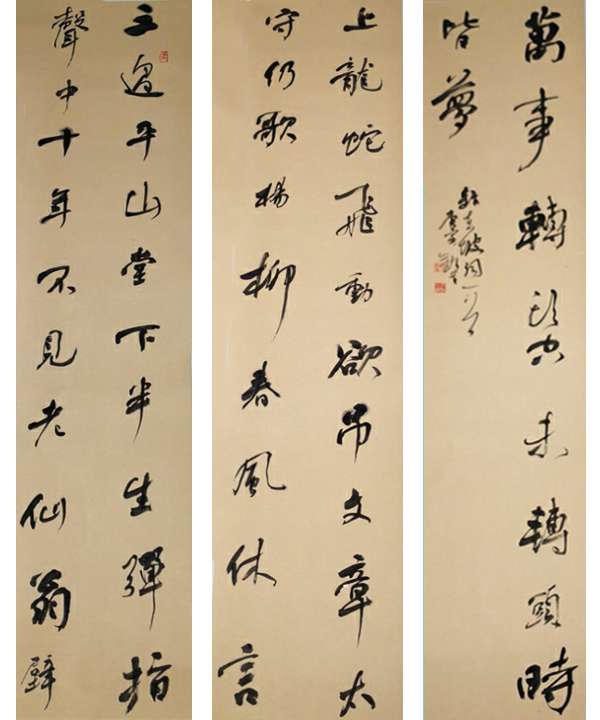 三過平山堂下半生彈指
聲中十年不見老仙翁壁
上龍蛇飛動欲吊文章太
守仍歌楊柳春風休言
萬事轉頭空未轉頭時
皆夢
東坡詞一首